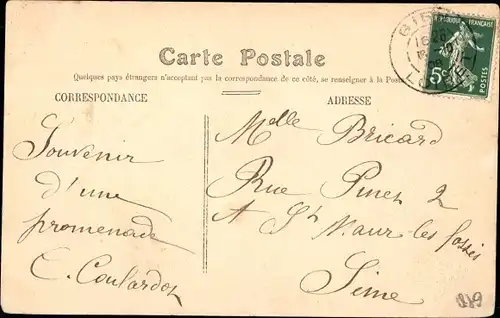 Carte Postale
Quelques pays étrangers n'acceptant pas la correspondance de ce côté, se renseigner à la Poste
CORRESPONDANCE
ADRESSE
Souvenir
d'une
promenade
Melle Bricard
Rue 2
A St Maur-les-fossés
Seine
RÉPUBLIQUE FRANÇAISE
5c
POSTES